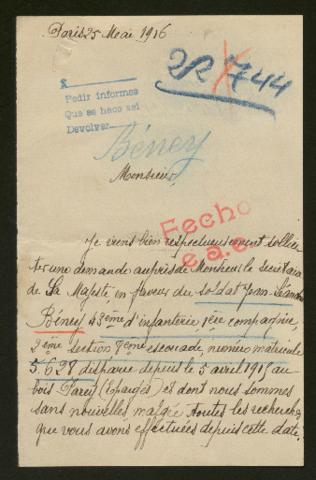 Paris 25 Mai 1916
R 744
Pedir informes
Que se haco asi
Devolver
Béney
Monsieur,
Fecho
e.a.e.
Je viens bien respectueusement sollici
ter une demande auprès de Monsieur le secrétaire
de Sa Majesté, en faveur du soldat Jean
Béney 43ème d'infanterie 1ère compagnie,
2ème section 7ème escouade, numéro matricule
5628 disparu depuis le 5 avril 1915 au
bois (Eparges) et dont nous sommes
sans nouvelles malgré toutes les recherches
que nous avons effectuées depuis cette date.